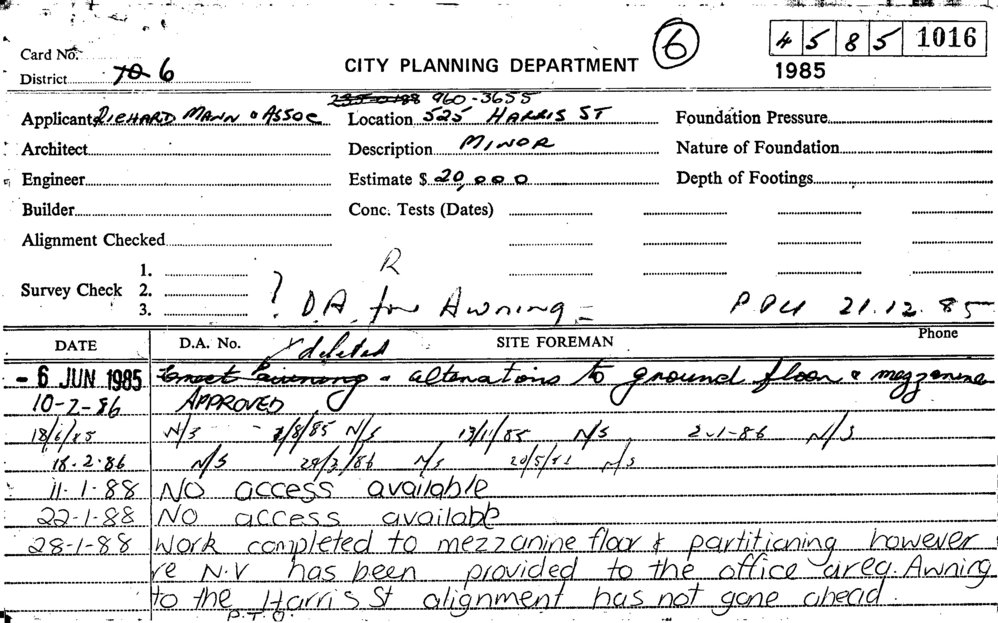 Card No.
District 70 6
CITY PLANNING DEPARTMENT
6
4 5 8 5 1016
1985
235-0188 960-3655
Applicant RICHARD MANN & ASSOC Location 525 HARRIS ST Foundation Pressure
Architect Description MINOR Nature of Foundation
Engineer Estimate $ 20,000 Depth of Footings
Builder Conc. Tests (Dates)
Alignment Checked
R
Survey Check 1.
2.
3.
? D.A. for Awning - P.D.U 21.12.85
DATE D.A. No. SITE FOREMAN Phone
deleted
- 6 JUN 1985 - alterations to ground floor & mezzanine
10-2-86 APPROVED
18/6/85 N/S - 2/8/85 N/S 13/11/85 N/S 2-1-86 N/S
18.2.86 N/S N/S N/S
11-1-88 NO access available
22-1-88 NO access available
28-1-88 Work completed to mezzanine floor & partitioning however
re N.V has been provided to the office area. Awning
to the Harris St alignment has not gone ahead.
P.T.O.